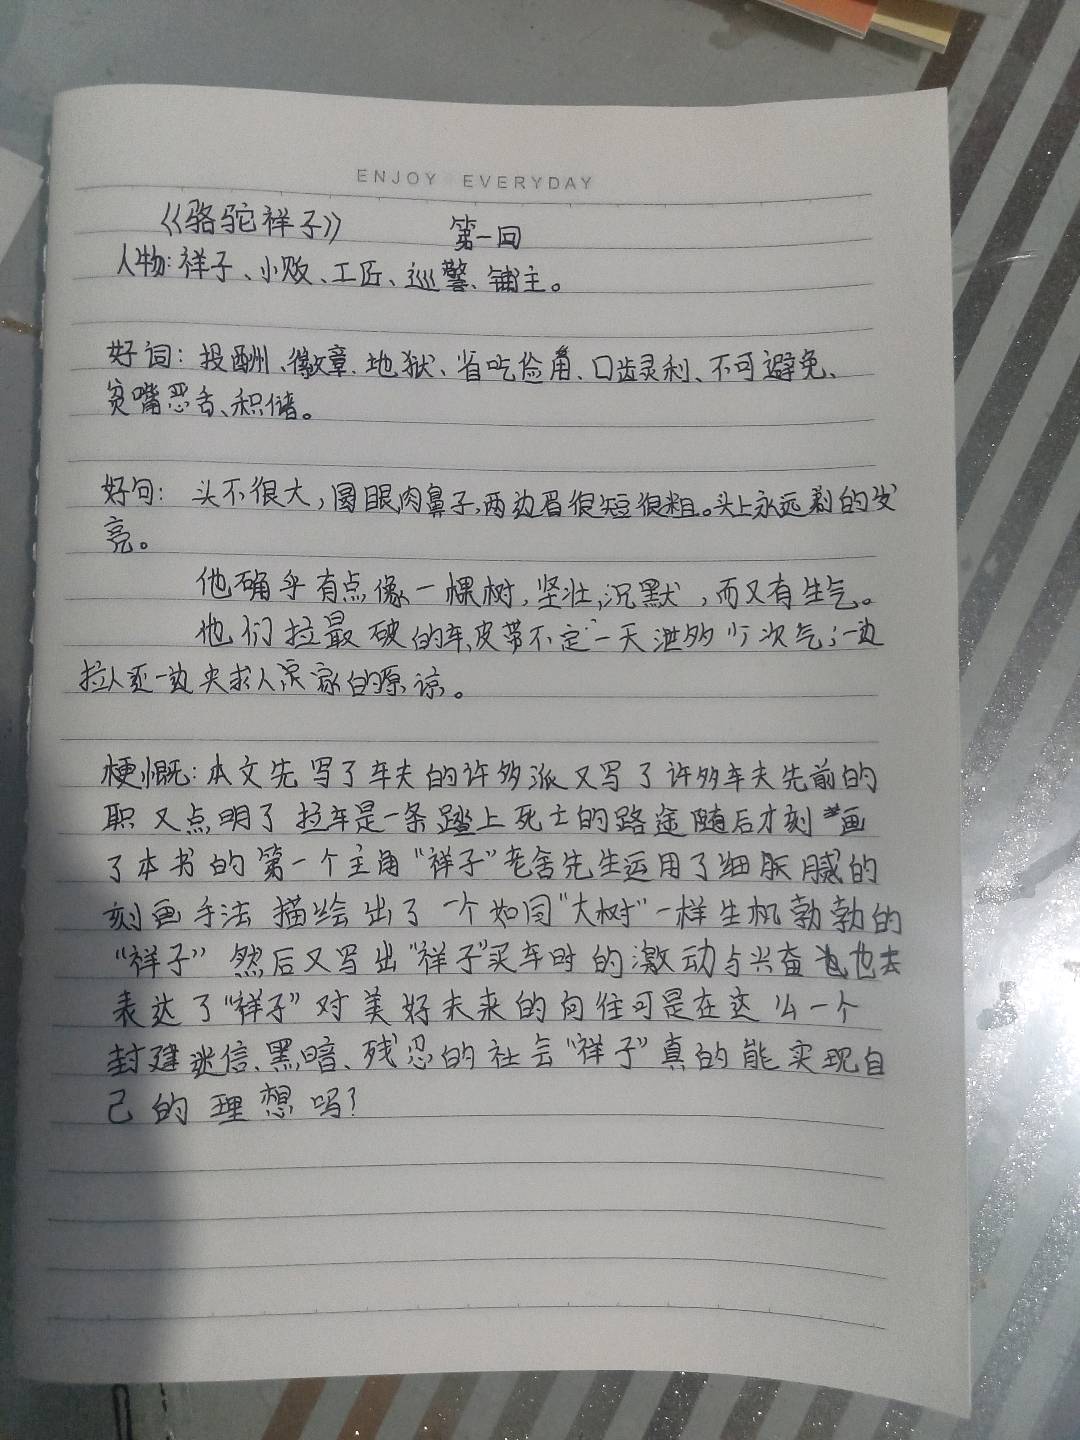 ENJOY EVERYDAY
《骆驼祥子》 第一回
人物:祥子、小贩、工匠、巡警、铺主。
好词:报酬、徽章、地狱、省吃俭用、口齿灵利、不可避免、
贫嘴恶舌、积储。
好句: 头不很大,圆眼,肉鼻子,两边眉很短很粗。头上永远剃的发
亮。
他确乎有点像一棵树,坚壮,沉默,而又有生气。
他们拉最破的车,皮带不定一天泄多少次气;一边
拉人还一边央求人家的原谅。
梗慨:本文先写了车夫的许多派又写了许多车夫先前的
职又点明了拉车是一条踏上死士的路途随后才刻画
了本书的第一个主角“祥子”老舍先生运用了细腻的
刻画手法描绘出了一个如同“大树”一样生机勃勃的
“祥子”然后又写出“祥子”买车时的激动与兴奋也
表达了“祥子”对美好未来的向往可是在这么一个
封建迷信、黑暗、残忍的社会“祥子”真的能实现自
己的理想吗?